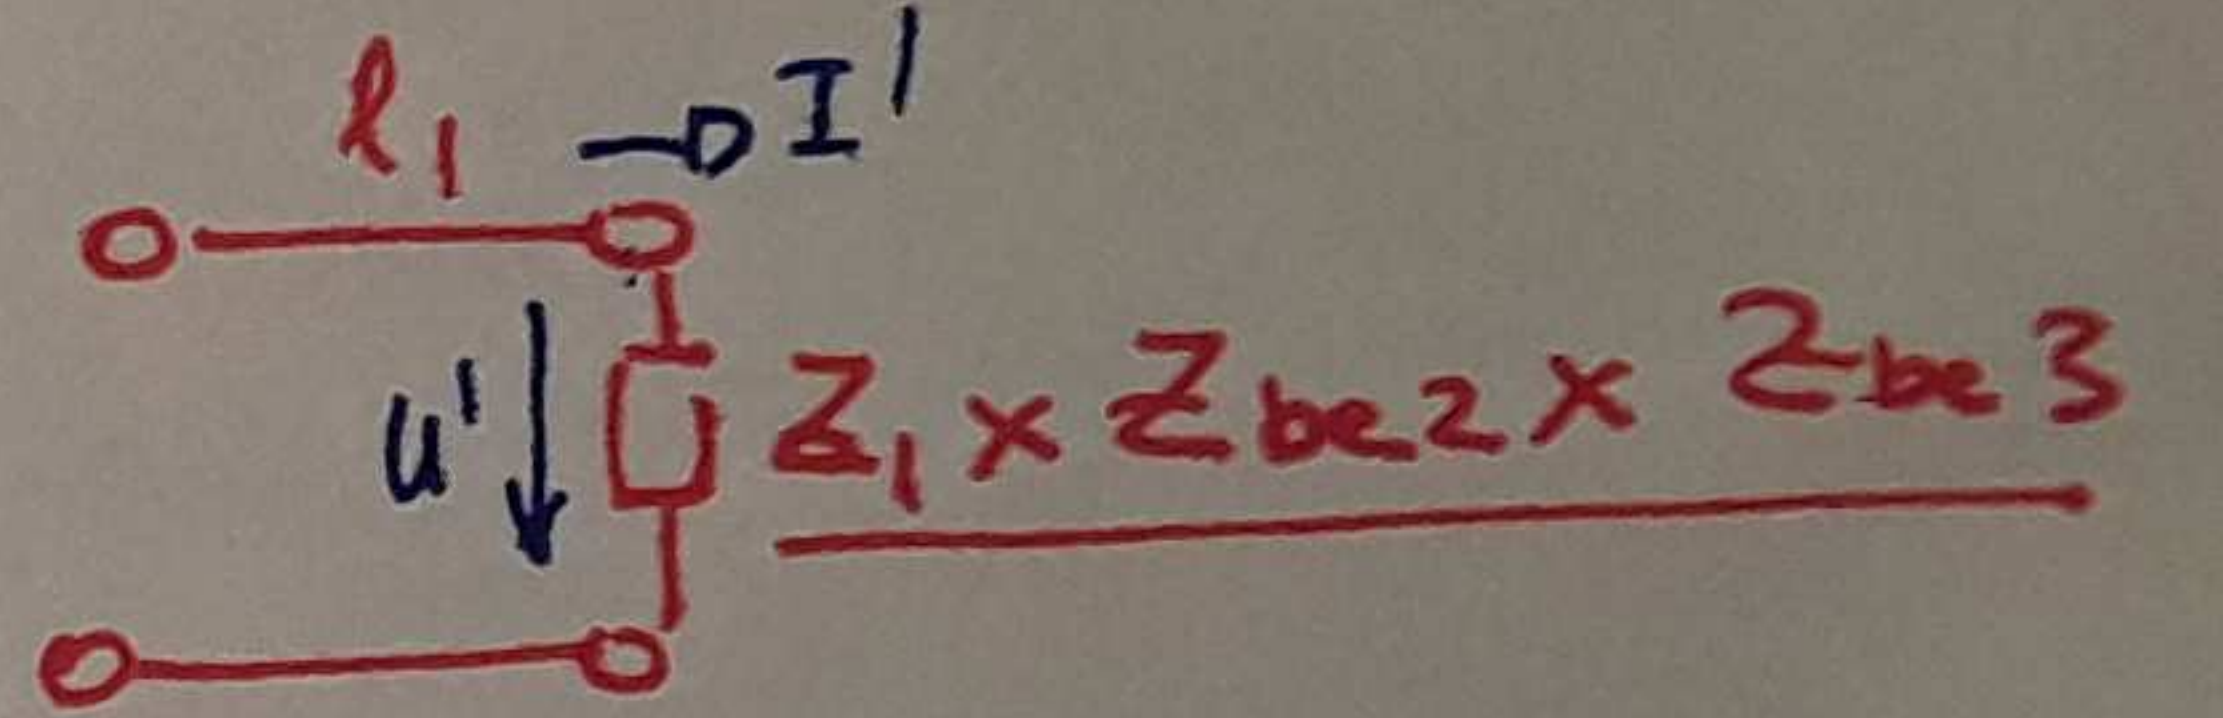 l₁ I'
u' Z₁ x Zbe2 x Zbe3